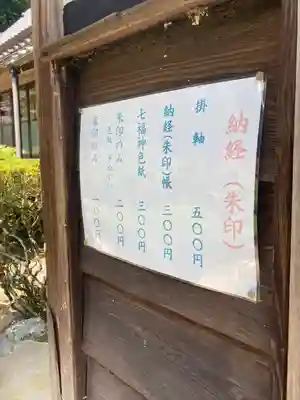 納経（朱印）
掛軸 五〇〇円
納経（朱印）帳 三〇〇円
七福神色紙 三〇〇円
朱印のみ 二〇〇円
一〇〇円